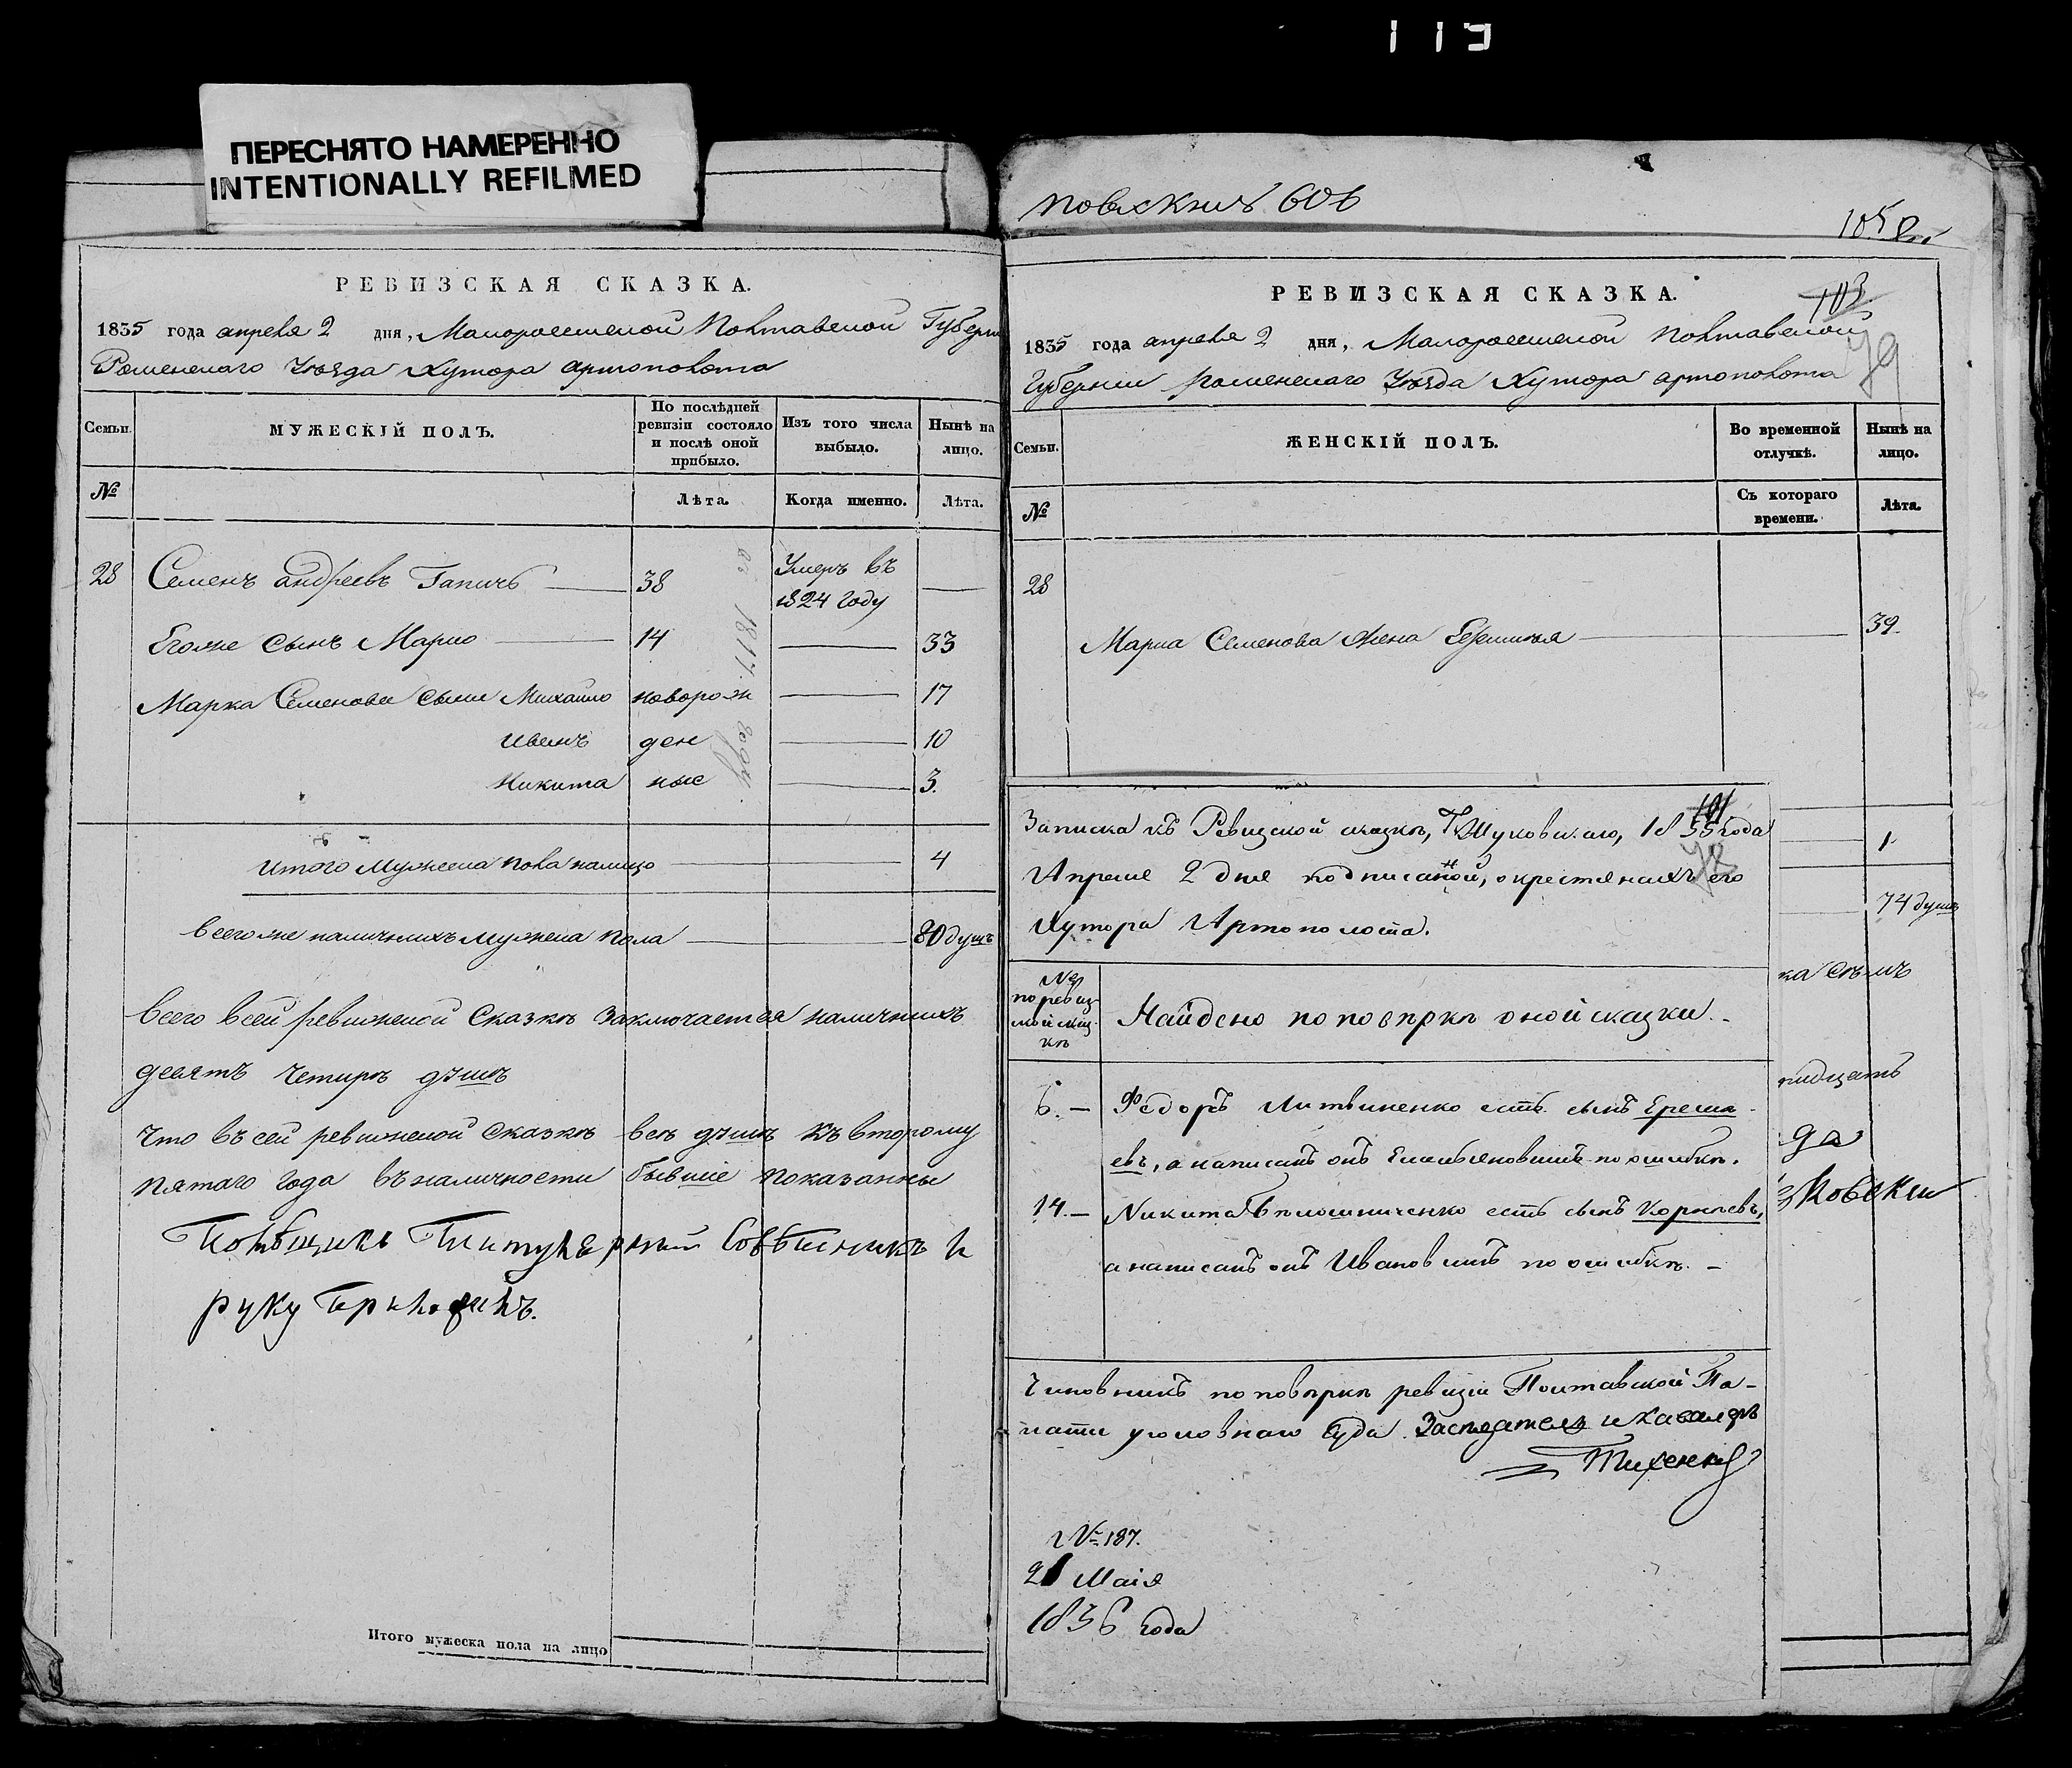 119
ПЕРЕСНЯТО НАМЕРЕННО
INTENTIONALLY REFILMED
РЕВИЗСКАЯ СКАЗКА.
1835 года апреля 2 дня, Малороссийской Полтавской Губерн
Роменскаго Уезда Хутора артополота
Семьи.
МУЖЕСКІЙ ПОЛЪ.
По послѣдней ревизіи состояло и послѣ оной прибыло.
Изъ того числа выбыло.
Нынѣ на лицо.
№
Лѣта.
Когда именно.
Лѣта.
28 Семенъ андреевъ Гапичъ 38 Умеръ въ 1824 году
Егоже сынъ Марко 14 33
Марка Семенова сыни Михайло новорож 17
иванъ ден 10
Никита ные 3.
1817 году.
итого мужеска пола налицо 4
всегоже наличнихъ мужеска пола 80 душъ
Всего всей ревижской Сказкѣ Заключается наличнихъ
десятъ четирѣ душъ
Что въ сей ревижской Сказкѣ всѣ душѣ къ второму
пятаго года въ наличности бывшіе показанны
Помѣщикъ Титулярный Совѣтникъ И
руку приложилъ.
Итого мужеска пола на лицо
105
РЕВИЗСКАЯ СКАЗКА.
103
79
1835 года апреля 2 дня, Малороссийской Полтавской
Губернии роменскаго Уезда Хутора артополота
Семьи.
ЖЕНСКІЙ ПОЛЪ.
Во временной отлучкѣ.
Нынѣ на лицо.
№
Съ котораго времени.
Лѣта.
28
Мариа Семенова жена 39.
1
74 душъ
Записка къ Ревизской сказкѣ, Г. Шуковскаго, 1835 года
Апреля 2 дня подписаной, о крестянахъ его
Хутора Артополота.
101
78
№ по ревизской сказкѣ
Найдено по повѣркѣ оной сказки.
6. — Федоръ Литвиненко есть сынъ Ереме
евъ, а написанъ онъ Емельяновимъ по ошибкѣ.
14. — Никита Бѣлошниченко есть сынъ Корнѣевъ,
а написанъ онъ Ивановимъ по ошибкѣ. —
Чиновникъ по повѣркѣ ревизіи Полтавской Па-
латы уголовнаго Суда Засѣдатель и кавалеръ
Тихенко
№ 187.
21 Маія
1836 года
да